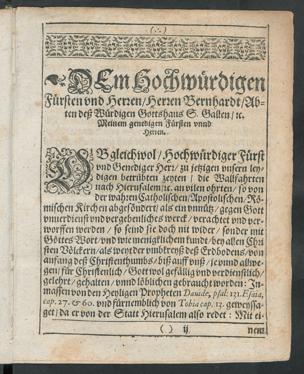 (∴)
DEm Hochwürdigen
Fürsten vnd Herren / Herren Bernhardt / Ab-
ten deß Würdigen Gottshaus S. Gallen / ꝛc.
Meinem genedigen Fürsten vnnd
Herren.
OBgleichwol / Hochwürdiger Fürst
vnd Genediger Herr / zu jetzigen vnsern ley-
digen betrübten zeyten / die Wallfahrten
nach Hierusalem / ꝛc. an vilen ohrten / so von
der wahren Catholischen / Apostolischen / Rö-
mischen Kirchen abgesöndert / als ein vnnütz / gegen Gott
vnuerdienst vnd vergebenliches werck / verachtet vnd ver-
worffen werden / so seind sie doch nit wider / sonder mit
Gottes Wort / vnd wie menigklichem kundt / bey allen Chri
sten Völckern / als weyt der vmbkreyß deß Erdbodens / von
anfang deß Christenthumbs / biß auff vnß / je vnnd allwe-
gen / für Christenlich / Gott wol gefällig vnd verdienstlich /
gelehrt / gehalten / vnnd löblichen gebraucht worden: In-
massen von den Heyligen Propheten Dauide, psal: 131. Esaia,
cap. 27. & 60. vnd fürnemblich von Tobia cap. 13. geweyssa-
get / da er von der Statt Hierusalem also redet : Mit ei-
( ) ij
nem